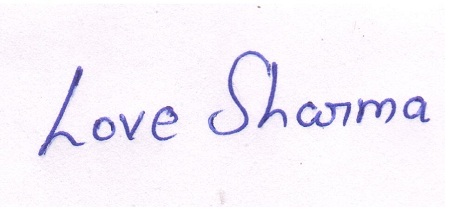 Love Sharma